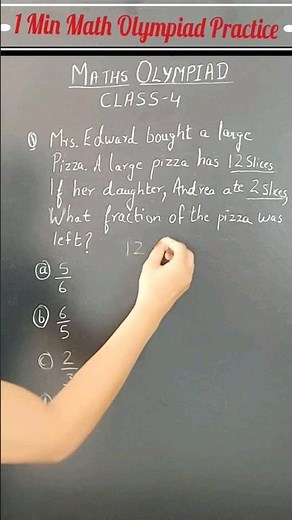 1 Min Math Olympiad Practice
MATHS OLYMPIAD
CLASS-4
Q Mrs. Edward bought a large
Pizza. A large pizza has 12 Slices
If her daughter, Andrea ate 2 Slices,
What fraction of the pizza was
left? 12
(a) 5/6
(b) 6/5
(c) 2/3